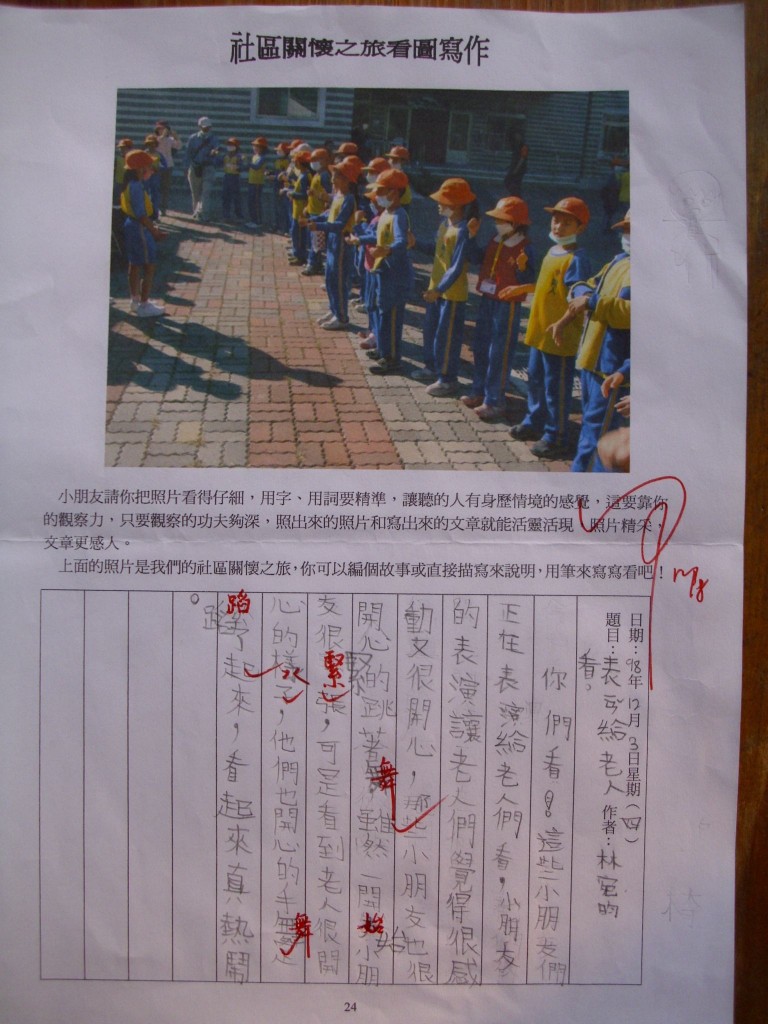 社區關懷之旅看圖寫作
小朋友請你把照片看得仔細，用字、用詞要精準，讓聽的人有身歷情境的感覺，這要靠你
的觀察力，只要觀察的功夫夠深，照出來的照片和寫出來的文章就能活靈活現，照片精采，
文章更感人。
上面的照片是我們的社區關懷之旅，你可以編個故事或直接描寫來說明，用筆來寫寫看吧！
日期：98年12月3日星期（四）
題目：表演給老人 作者：林
看，
你們看！這些小朋友們
正在表演給老人們看，小朋友
的表演讓老人們覺得很感
動又很開心，那些小朋友也很
開心的跳著舞，雖然一開始小朋
友很緊張，可是看到老人很開
心的樣子，他們也開心的手舞足
蹈了起來，看起來真熱鬧
。
蹈
緊
舞
始
舞
24